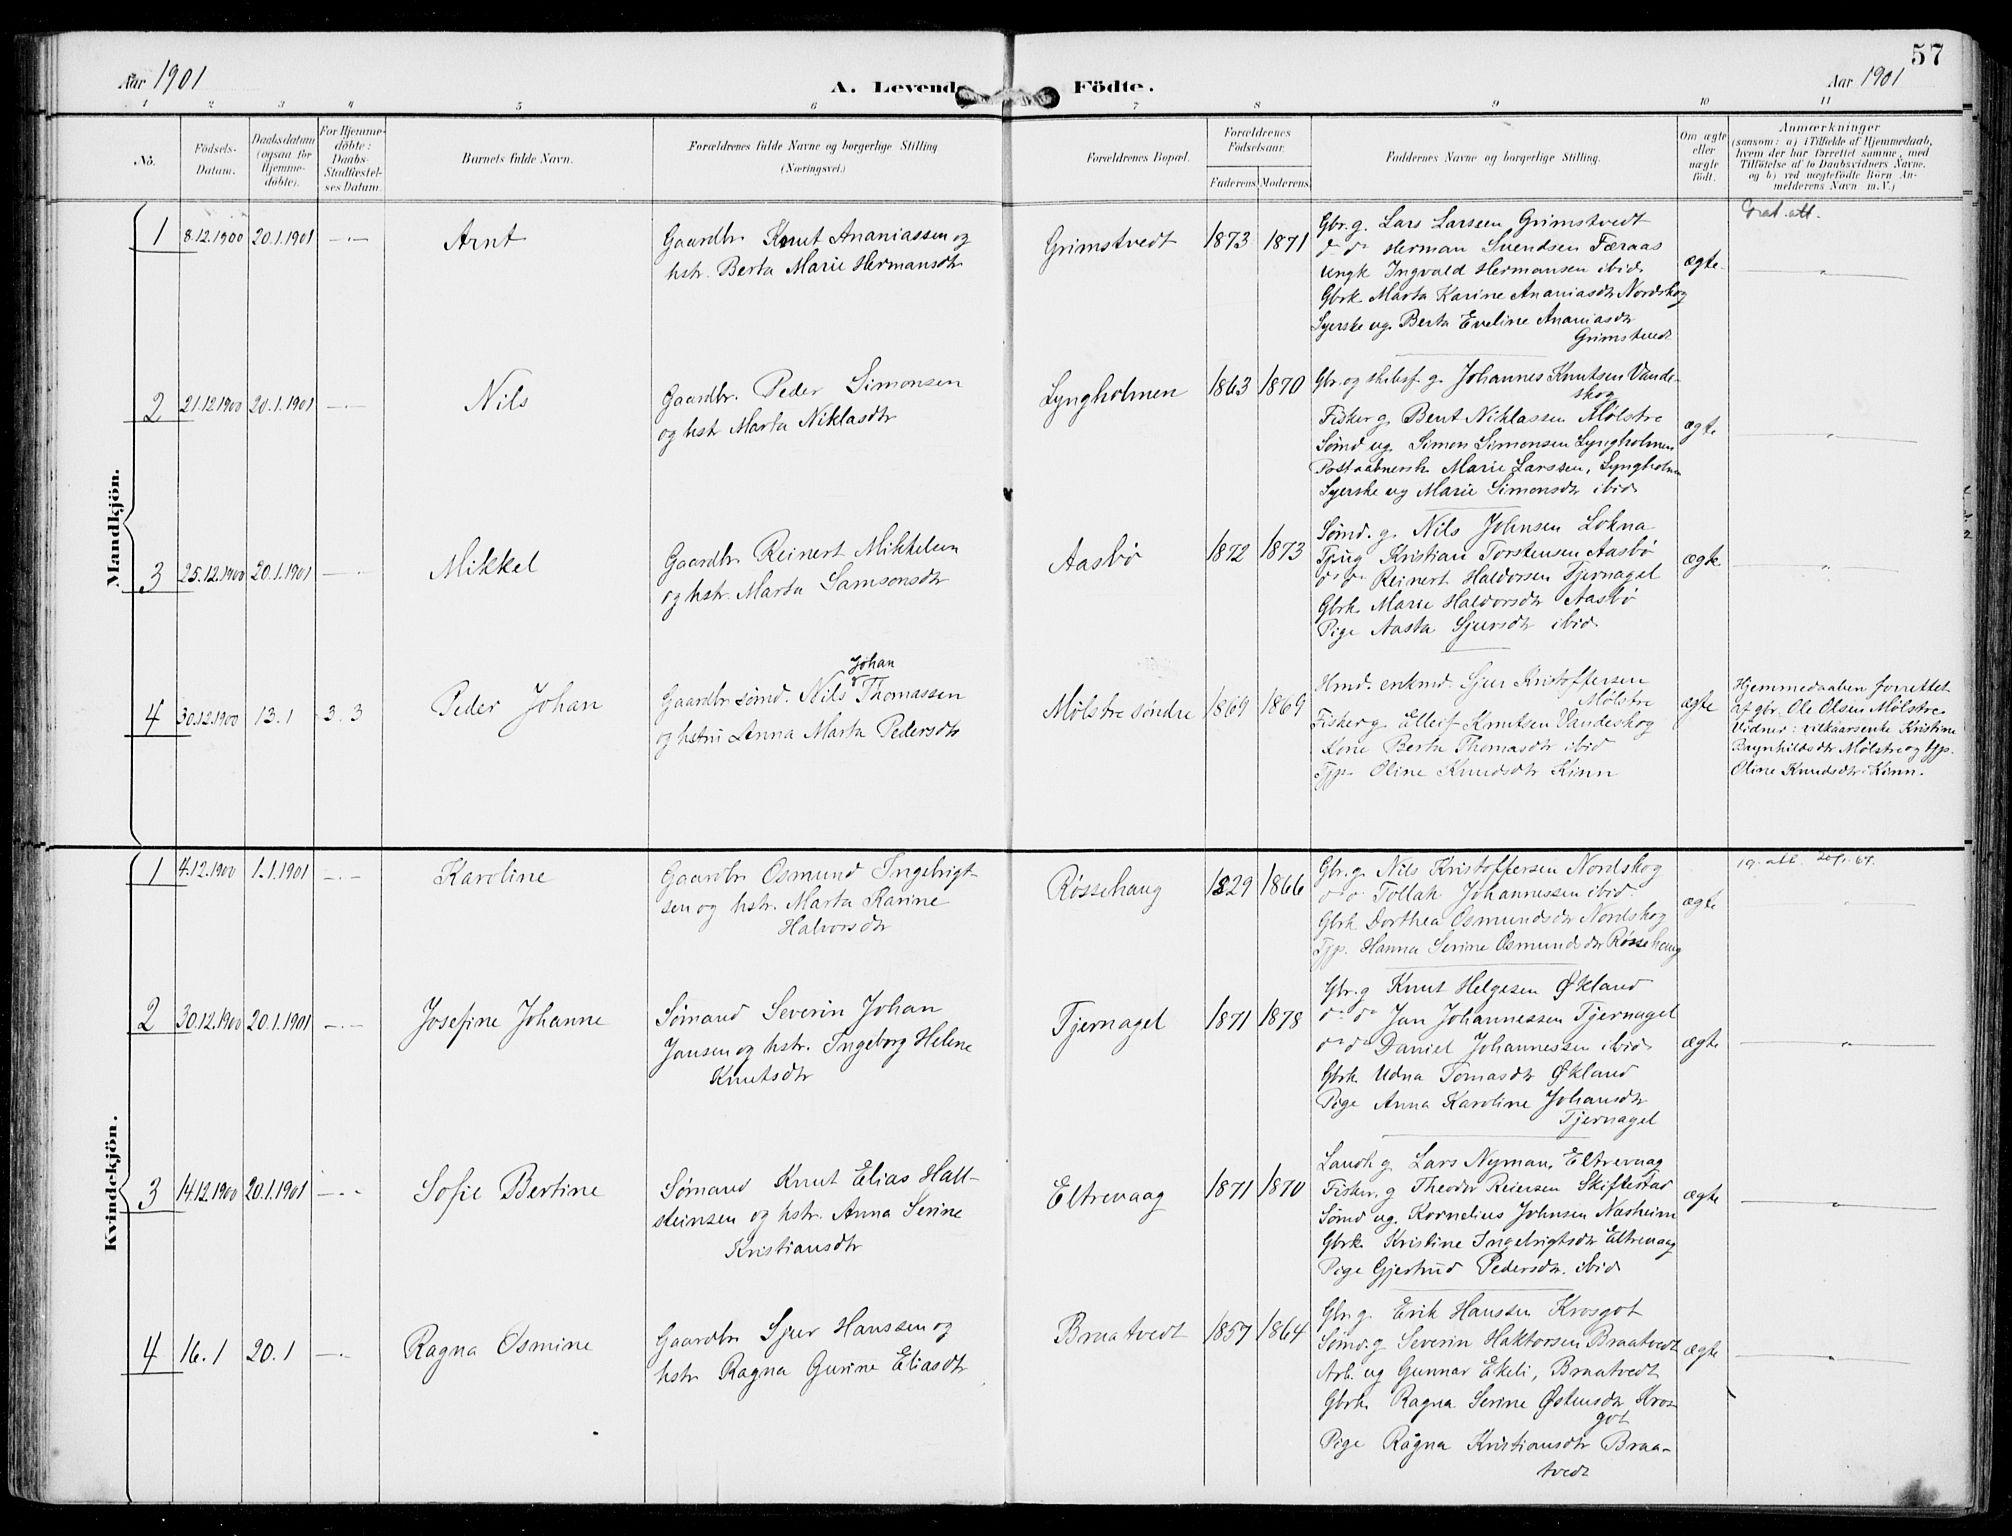 57
Aar 1901
A. Levende Födte.
Aar 1901
1 2 3 4 5 6 7 8 9 10 11
No.
Födsels-
Datum.
Daabsdatum
(ogsaa for
Hjemme-
döbte).
For Hjemme-
döbte:
Daabs-
Stadfæstel-
ses Datum.
Barnets fulde Navn.
Forældrenes fulde Navne og borgerlige Stilling
(Næringsvei.)
Forældrenes Bopæl.
Forældrenes
Födselsaar.
Faderens. Moderens.
Faddernes Navne og borgerlige Stilling.
Om ægte
eller
uægte
födt.
Anmærkninger
(saasom: a) i Tilfælde af Hjemmedaab,
hvem der har forrettet samme, med
Tilföielse af to Daabsvidners Navne.
og b) ved uægtefödte Börn An-
melderens Navn m. V.)
Mandkjön.
1
8.12.1900
20.1.1901
Arnt
Gaardbr. Knut Ananiassen og
hstr. Berta Marie Hermansdtr
Grimstvedt
1873
1871
Gbr. g. Lars Larssen Grimstvedt
do do Herman Svendsen Færaas
Ungk Ingvald Hermansen ibid.
Gbrk Marta Karine Ananiasdtr Nordskog
Syerske ug. Berta Eveline Ananiasdtr
Grimstvedt
ægte
2
21.12.1900
20.1.1901
Nils
Gaardbr. Peder Simonsen
og hstr Marta Niklasdtr
Lyngholmen
1863
1870
Gbr. og skibsf. g. Johannes Knutsen Vande-
skog
Fisker g. Bent Niklassen Mølstre
Sømd ug. Simon Simonsen Lyngholmen
Postaabnersk. Marie Larssen, Lyngholmen
Syerske ug Marie Simonsdtr ibid.
ægte
3
25.12.1900
20.1.1901
Mikkel
Gaardbr Reinert Mikkelsen
og hstr. Marta Samsonsdtr
Aasbø
1872
1873
Sømd. g. Nils Johnsen Lokna
Tj.ug Kristian Torstensen Aasbø
do do Reinert Haldorsen Tjernagel
Gbrk. Marie Haldorsdtr Aasbø
Pige Aasta Sjursdtr ibid.
ægte
4
30.12.1900
13.1
3.3
Peder Johan
Johan
Gaardbr sømd. Nils Thomassen
og hstru Anna Marta Pedersdtr
Mølstre søndre
1869
1869
Hmd. enkmd. Sjur Kristoffersen
Mølstre
Fisker g. Elleif Knutsen Vandeskog
Kone Berta Thomasdtr ibid
Tjp. Oline Knudsdtr Kinn
ægte
Hjemmedaaben forrettet
af gbr. Ole Olsen Mølstre.
Vidner: vilkaarsenke Kristine
Brynhildsdtr Mølstre og tjp.
Oline Knudsdtr Kinn.
Kvindekjön.
1
4.12.1900
1.1.1901
Karoline
Gaardbr Osmund Ingebrigt-
sen og hstr. Marta Karine
Halvorsdtr
Røssehaug
1829
1866
Gbr. g. Nils Kristoffersen Nordskog
do do Tollak Johannessen ibid.
Gbrk Dorthea Osmundsdtr Nordskog
Tjp. Hanna Serine Osmundsdtr Røssehaug
ægte
2
30.12.1900
20.1.1901
Josefine Johanne
Sømand Severin Johan
Jansen og hstr. Ingeborg Helene
Knutsdtr
Tjernagel
1871
1878
Gbr. g Knut Helgesen Økland
do do Jan Johannessen Tjernagel
do do Daniel Johannessen ibid.
Gbrk Udna Tomasdtr Økland
Pige Anna Karoline Johansdtr
Tjernagel
ægte
3
14.12.1900
20.1.1901
Sofie Bertine
Sømand Knut Elias Hall-
steinsen og hstr. Anna Serine
Kristiansdtr
Eltrevaag
1871
1870
Landh g. Lars Nyman, Eltrevaag
Fisker. g Theodor Reiersen Skiftestad
Sømd ug. Kornelius Johnsen Næsheim
Gbrk. Kristine Ingebrigtsdtr Eltrevaag
Pige Gjertrud Pedersdtr. ibid
ægte
4
16.1
20.1
Ragna Osmine
Gaardbr Sjur Hanssen og
hstr Ragna Gurine Eliasdtr
Braatvedt
1857
1864
Gbr. g. Erik Hanssen Krosgot
Sømd. g Severin Haktorsen Braatvedt
Arb. ug Gunnar Ekeli, Braatvedt
Gbrk. Ragna Serine Østensdtr Kros-
got
Pige Ragna Kristiansdtr Braa-
tvedt
ægte